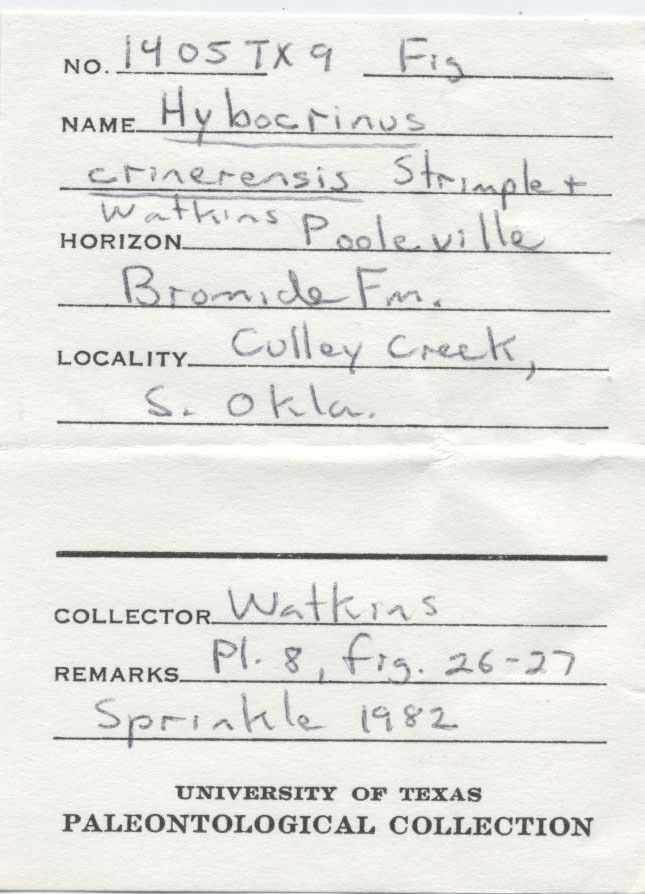 NO. 1405TX9 Fig
NAME Hybocrinus
crinerensis Strimple +
Watkins
HORIZON Pooleville
Bromide Fm.
LOCALITY Culley Creek,
S. Okla.
COLLECTOR Watkins
REMARKS Pl. 8, fig. 26-27
Sprinkle 1982
UNIVERSITY OF TEXAS
PALEONTOLOGICAL COLLECTION